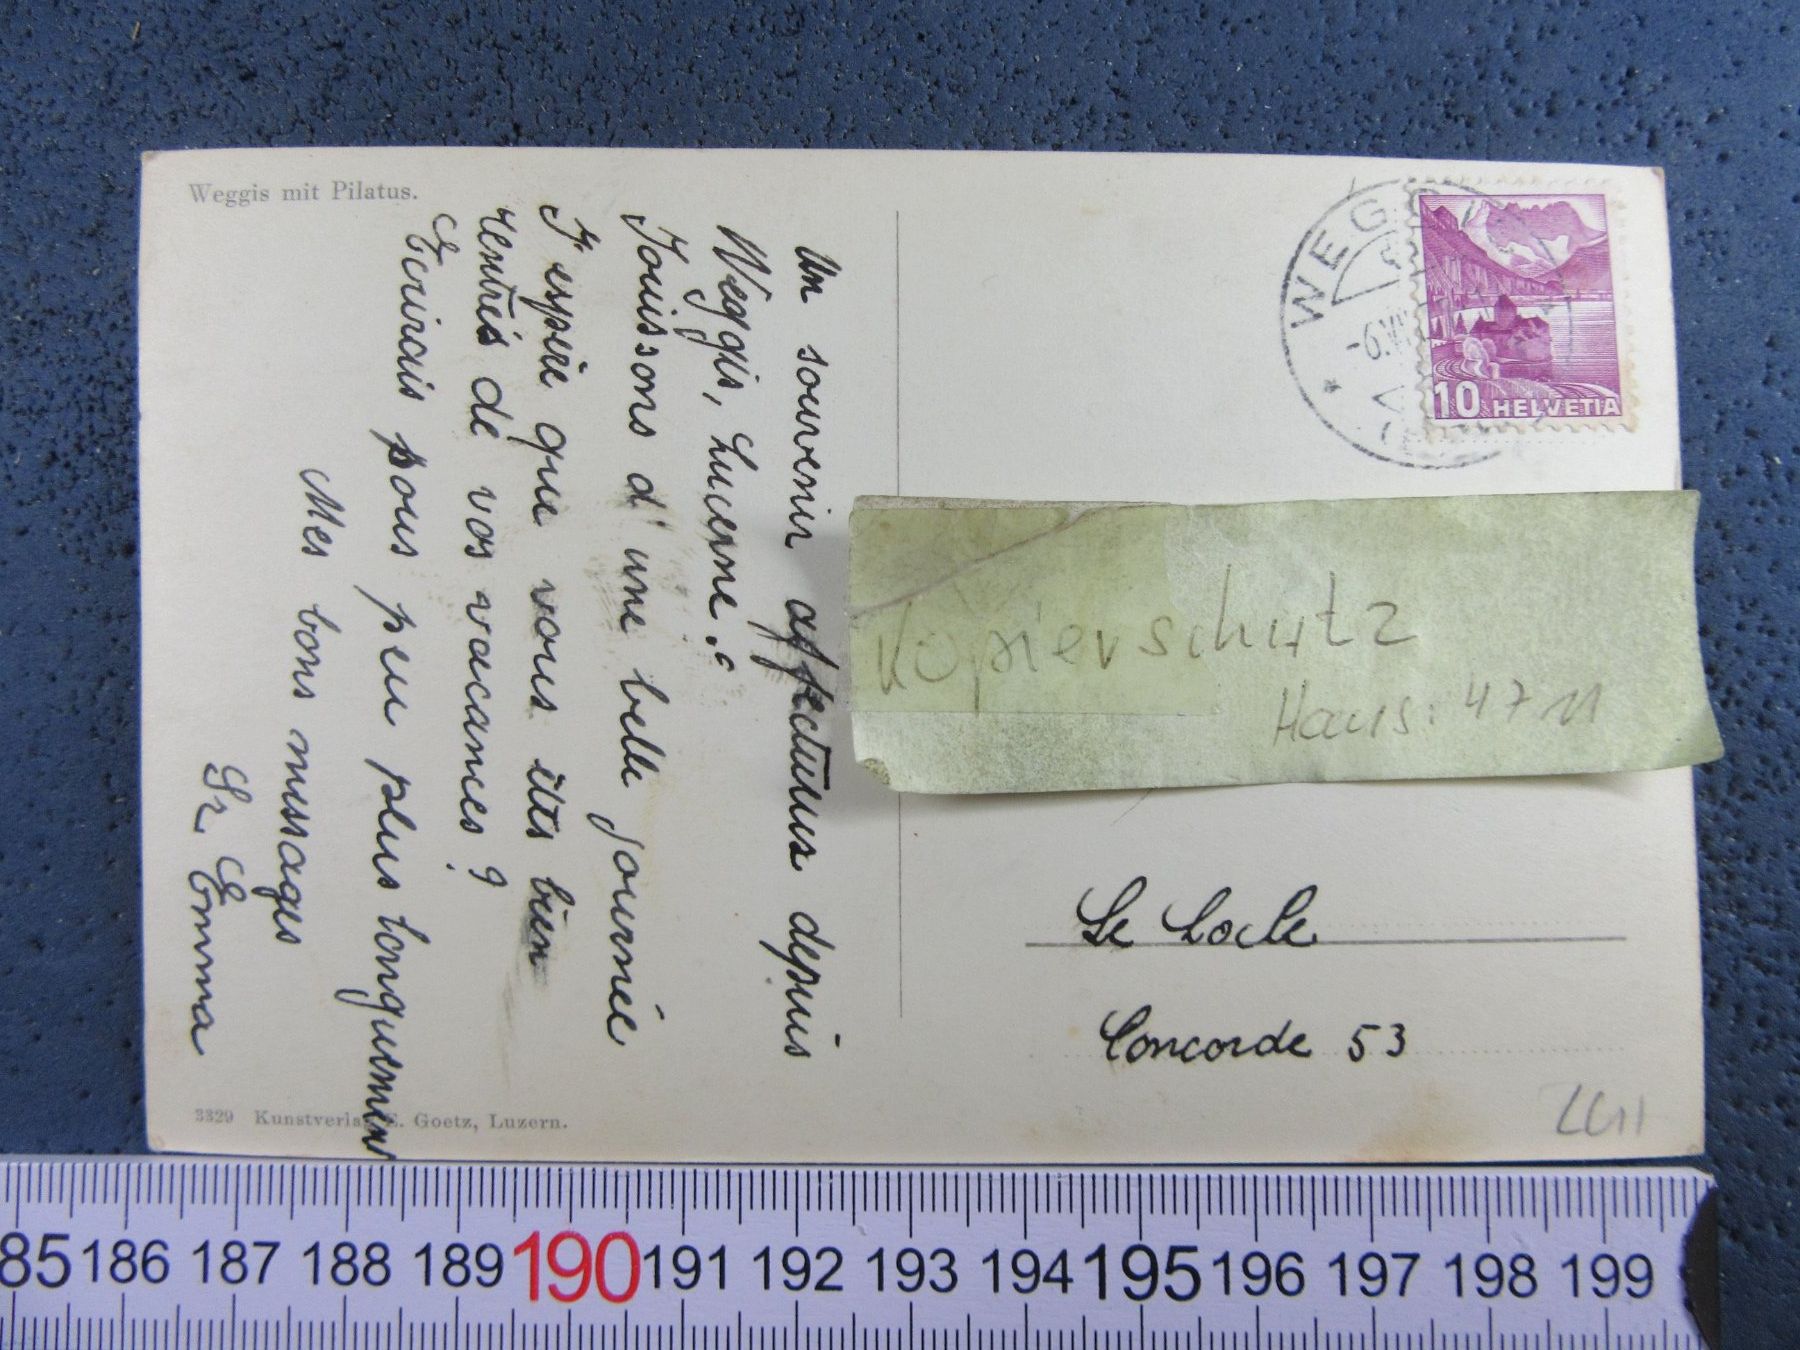 Weggis mit Pilatus.
Un souvenir affectueux depuis
Weggis, Lucerne.
Jouissons d'une belle journée
J'espère que vous êtes bien
rentrés de vos vacances?
Ecrirais sous peu plus longuement
Mes bons messages
Sr Emma
3329 Kunstverlag E. Goetz, Luzern.
WEG
-6.VI
10 HELVETIA
Kopierschutz
Haus: 4711
Le Locle
Concorde 53
185 186 187 188 189 190 191 192 193 194 195 196 197 198 199